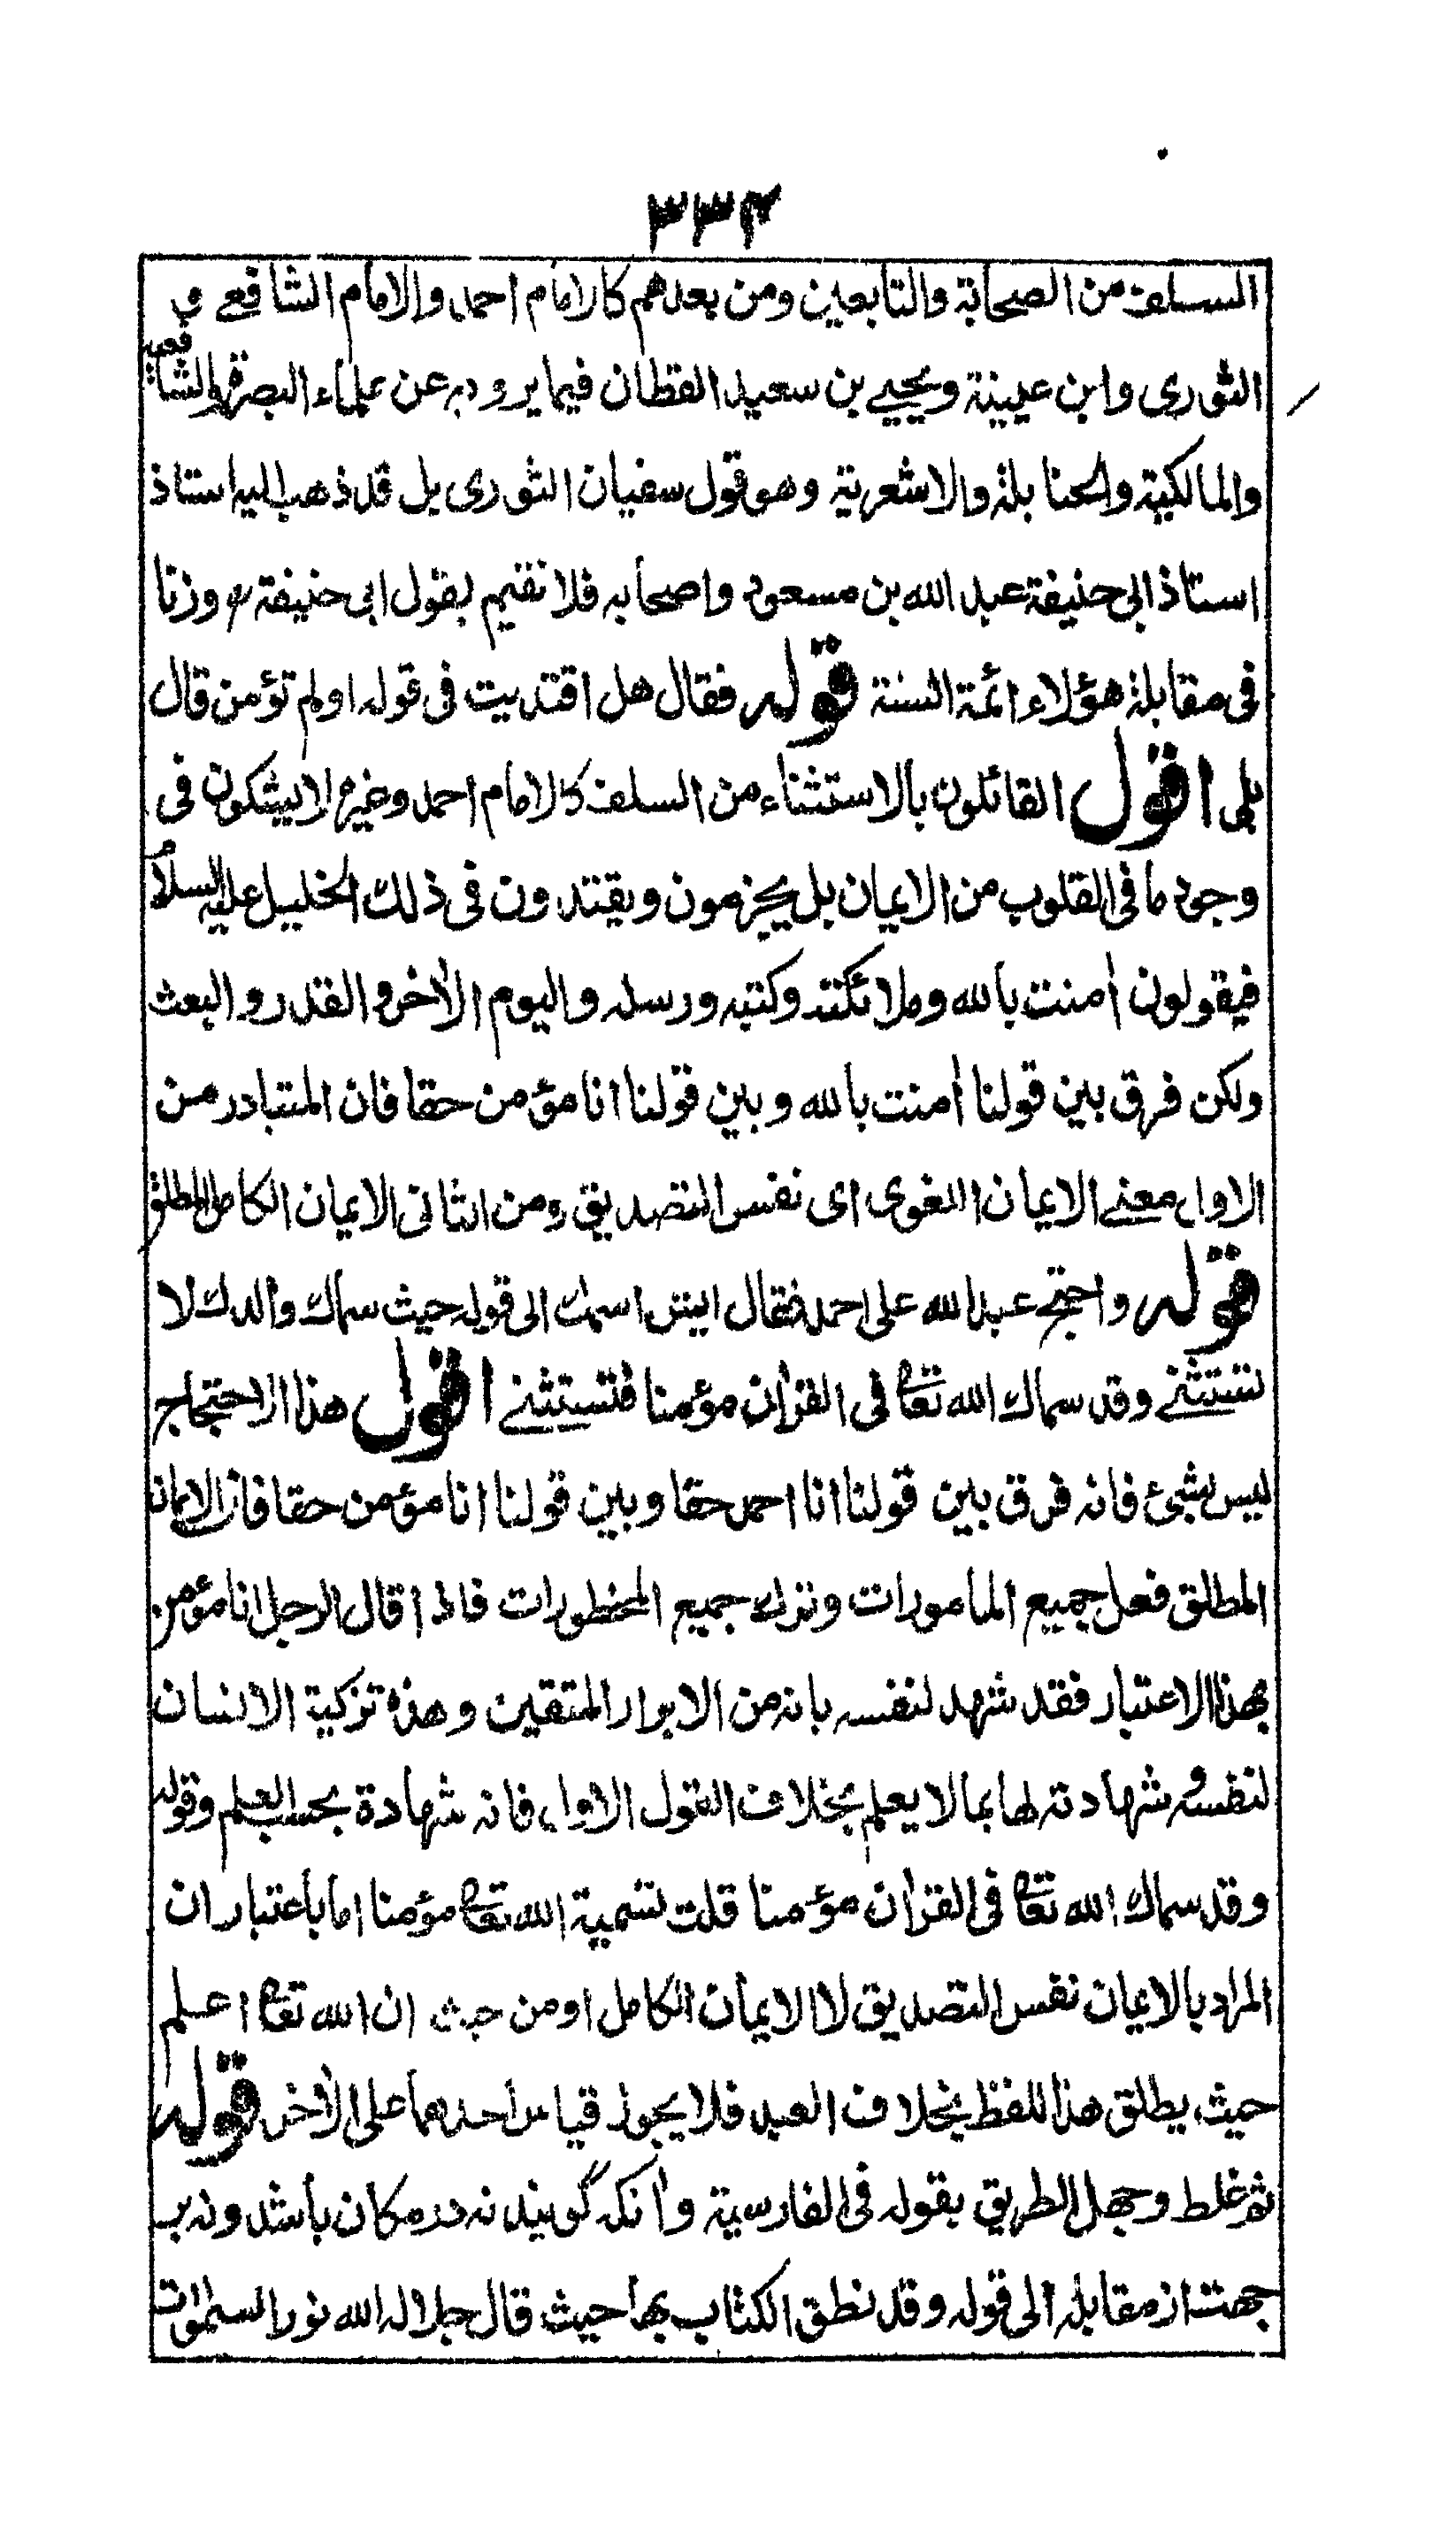 ٣٣٤
السلف من الصحابة والتابعين ومن بعدهم كالامام احمد والامام الشافعے و
الثوری وابن عيينة ويحيے بن سعيد القطان فيما يرويه عن علماء البصرة والشافعية
والمالكية والحنابلة والاشعرية وهو قول سفيان الثوری بل قد ذهب اليه استاذ
استاذ ابی حنيفة عبد الله بن مسعود واصحابه فلا نقيم بقول ابی حنيفة رح وزنا
فی مقابلة هؤلاء ائمة السنة قوله فقال هل اقتديت فی قوله اولم تؤمن قال
بلی اقول القائلون بالاستثناء من السلف كالامام احمد وغيره لا يشكون فی
وجود ما فی القلوب من الايمان بل يجزمون ويقتدون فی ذلك الخليل عليه السلام
فيقولون اٰمنت بالله وملائكته وكتبه ورسله واليوم الاٰخر والقدر والبعث
ولكن فرق بين قولنا اٰمنت بالله وبين قولنا انا مؤمن حقا فان المتبادر من
الاول معنے الايمان اللغوی ای نفس التصديق ومن الثانی الايمان الكامل المطلق
قوله واحتج عبد الله علی احمد فقال ايش اسمك الی قوله حيث سماك والدك لا
تستثنے وقد سماك الله تعالٰی فی القراٰن مؤمنا فتستثنے اقول هذا الاحتجاج
ليس بشئ فانه فرق بين قولنا انا احمد حقا وبين قولنا انا مؤمن حقا فان الايمان
المطلق فعل جميع المامورات وترك جميع المحظورات فاذا قال الرجل انا مؤمن
بهذا الاعتبار فقد شهد لنفسه بانه من الابرار المتقين وهذه تزكية الانسان
لنفسه وشهادته لها بما لا يعلم بخلاف القول الاول فانه شهادة بحسب العلم وقوله
وقد سماك الله تعالٰی فی القراٰن مؤمنا قلت تسمية الله تعالٰی مؤمنا اما باعتبار ان
المراد بالايمان نفس التصديق لا الايمان الكامل او من حيث ان الله تعالٰی اعلم
حيث يطلق هذا اللفظ بخلاف العبد فلا يجوز قياس احدهما علی الاٰخر قوله
ثم غلط وجهل الطريق بقوله فی الفارسية واٰنكه گويند نه در مكان باشد ونه بر
جهت از مقابله الی قوله وقد نطق الكتاب بها حيث قال جلاله الله نور السمٰوٰت